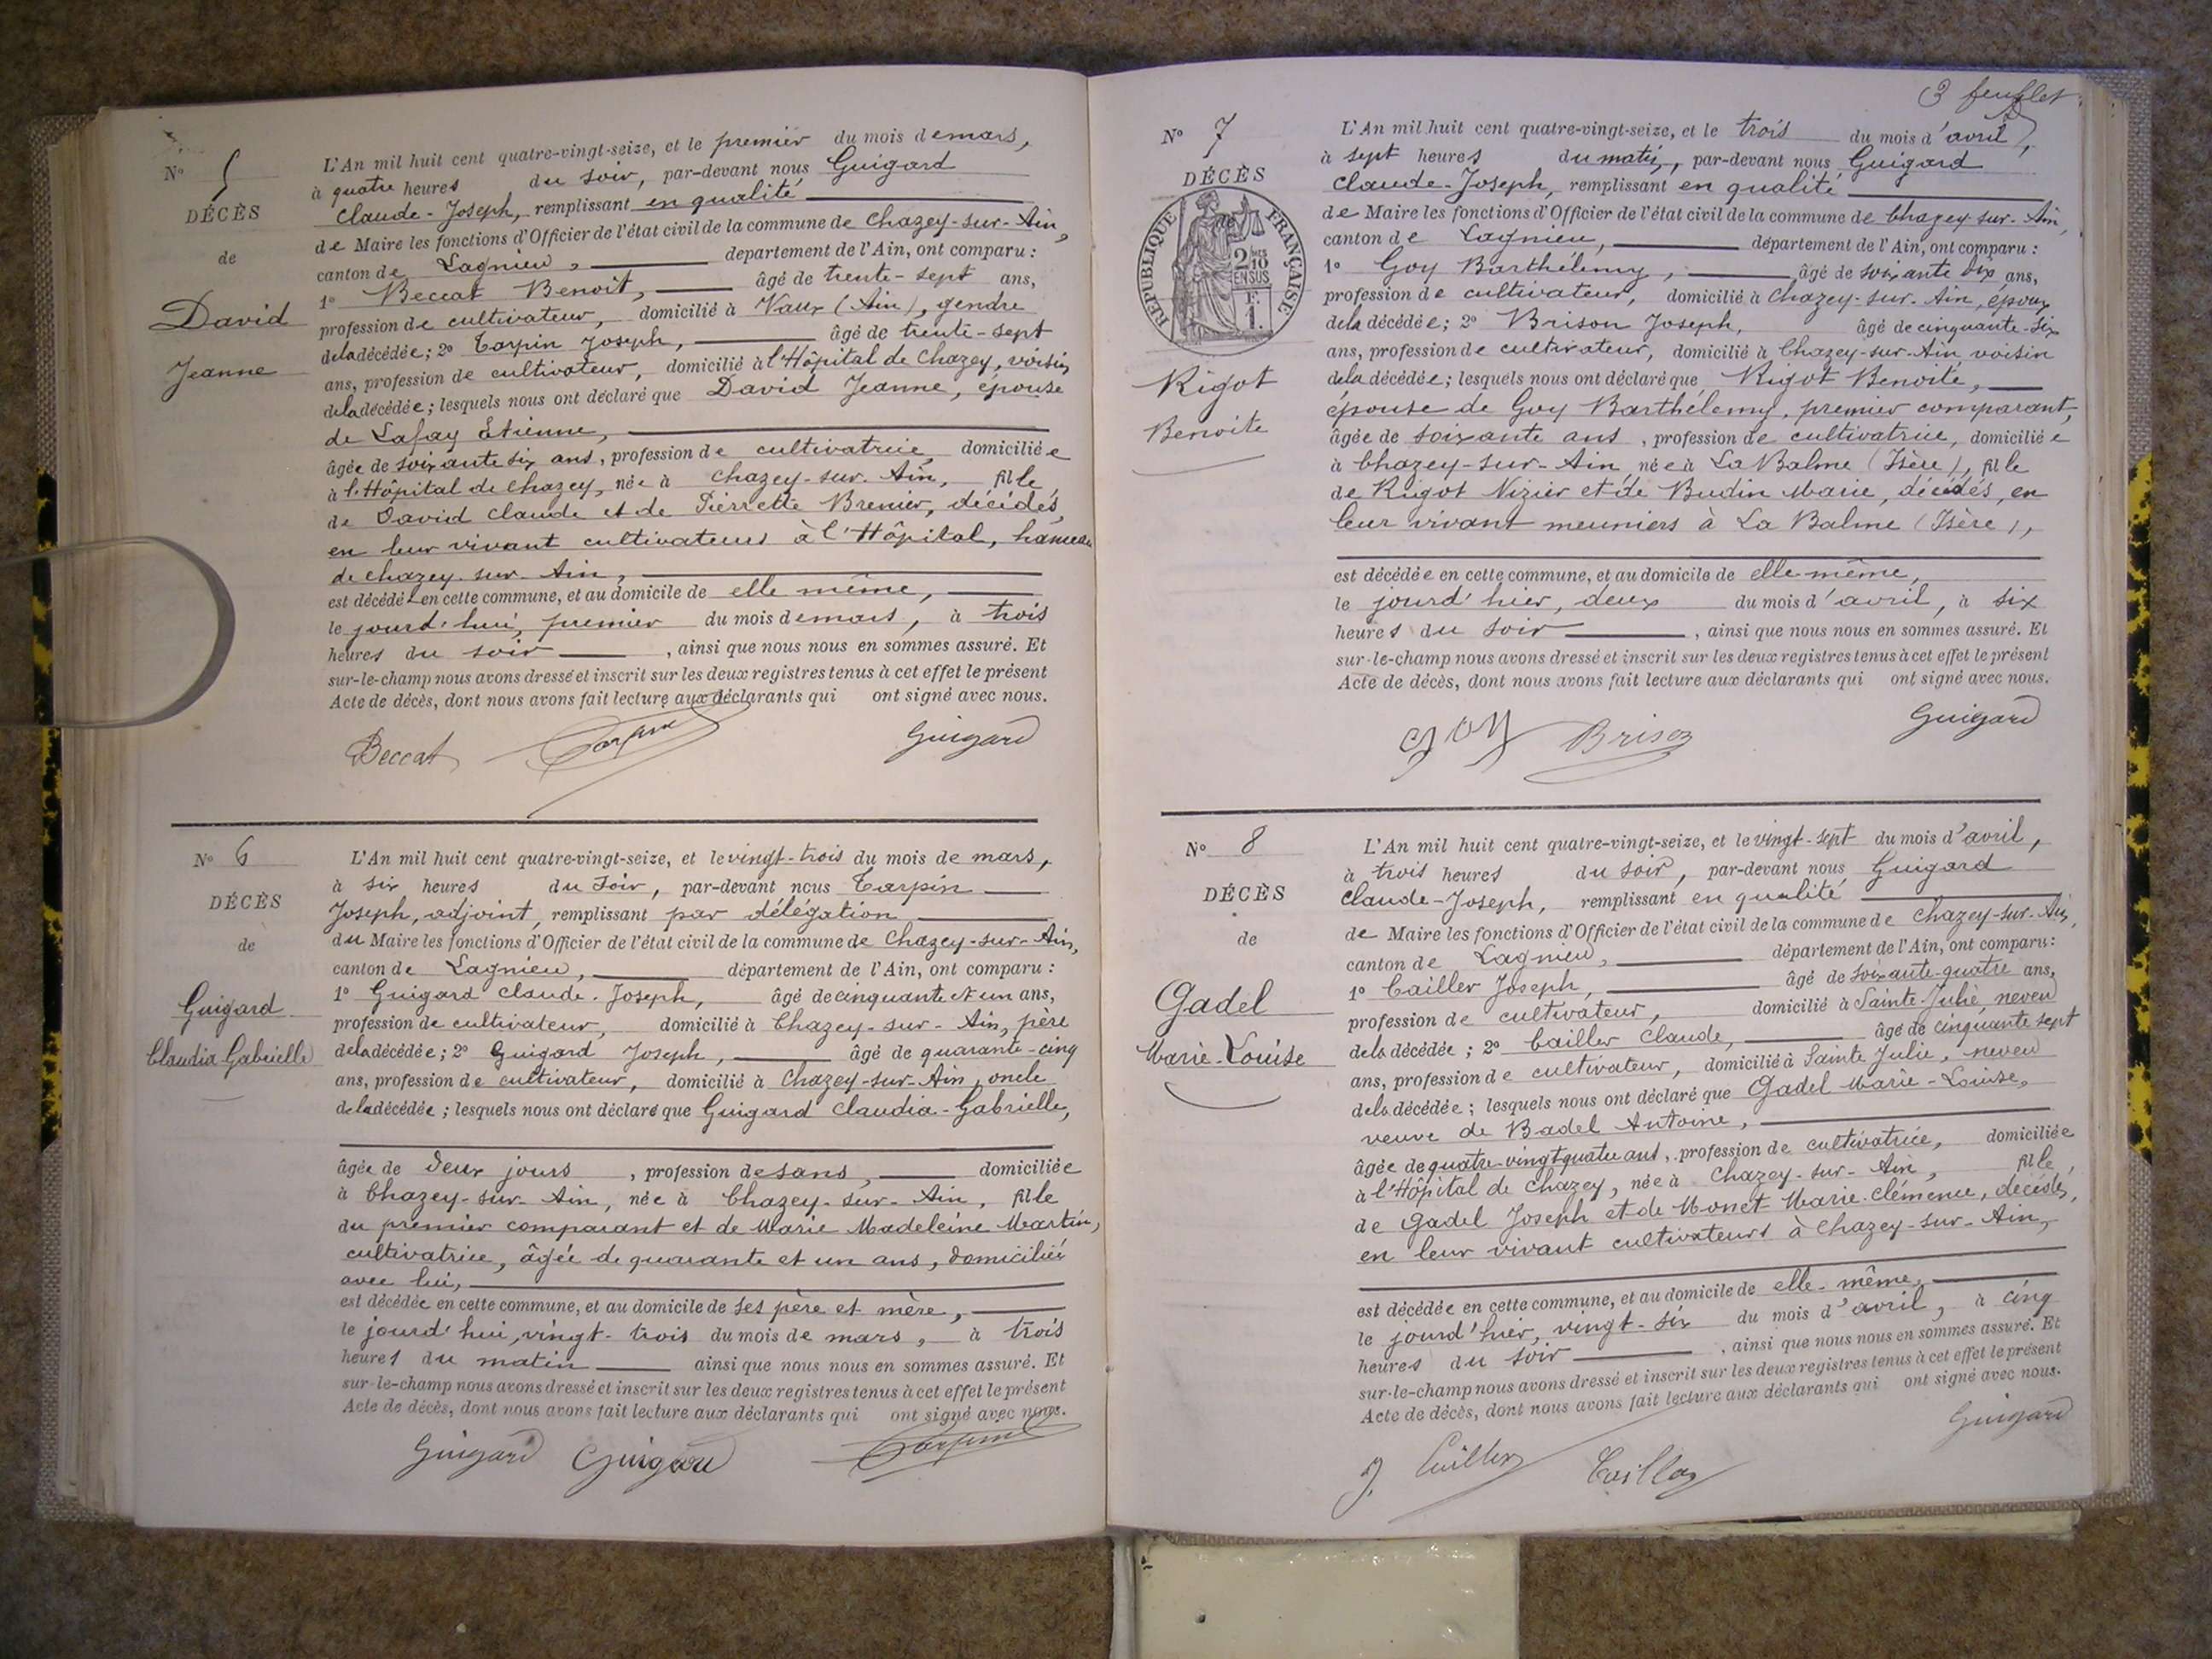 N° 5
DÉCÈS
de
David
Jeanne
L'An mil huit cent quatre-vingt-seize, et le premier du mois de mars,
à quatre heures du soir, par-devant nous Guigard
Claude-Joseph, remplissant en qualité
de Maire les fonctions d'Officier de l'état civil de la commune de Chazey-sur-Ain,
canton de Lagnieu, département de l'Ain, ont comparu :
1° Beccat Benoit, âgé de trente-sept ans,
profession de cultivateur, domicilié à Vaux (Ain), gendre
de la décédée; 2° Tarpin Joseph, âgé de trente-sept
ans, profession de cultivateur, domicilié à l'Hôpital de Chazey, voisin
de la décédée; lesquels nous ont déclaré que David Jeanne, épouse
de Lafay Etienne,
âgée de soixante six ans, profession de cultivatrice, domiciliée
à l'Hôpital de Chazey, née à Chazey-sur-Ain, fille
de David Claude et de Pierrette Brenier, décédés,
en leur vivant cultivateurs à l'Hôpital, hameau
de Chazey-sur-Ain,
est décédée en cette commune, et au domicile de elle même,
le jourd'hui, premier du mois de mars, à trois
heures du soir, ainsi que nous nous en sommes assuré. Et
sur-le-champ nous avons dressé et inscrit sur les deux registres tenus à cet effet le présent
Acte de décès, dont nous avons fait lecture aux déclarants qui ont signé avec nous.
Beccat Tarpin Guigard
N° 6
DÉCÈS
de
Guigard
Claudia Gabrielle
L'An mil huit cent quatre-vingt-seize, et le vingt-trois du mois de mars,
à six heures du soir, par-devant nous Tarpin
Joseph, adjoint, remplissant par délégation
du Maire les fonctions d'Officier de l'état civil de la commune de Chazey-sur-Ain,
canton de Lagnieu, département de l'Ain, ont comparu :
1° Guigard Claude-Joseph, âgé de cinquante et un ans,
profession de cultivateur, domicilié à Chazey-sur-Ain, père
de la décédée; 2° Guigard Joseph, âgé de quarante-cinq
ans, profession de cultivateur, domicilié à Chazey-sur-Ain, oncle
de la décédée; lesquels nous ont déclaré que Guigard Claudia-Gabrielle,
âgée de deux jours, profession de sans, domiciliée
à Chazey-sur-Ain, née à Chazey-sur-Ain, fille
du premier comparant et de Marie Madeleine Martin,
cultivatrice, âgée de quarante et un ans, domiciliée
avec lui,
est décédée en cette commune, et au domicile de ses père et mère,
le jourd'hui, vingt-trois du mois de mars, à trois
heures du matin ainsi que nous nous en sommes assuré. Et
sur-le-champ nous avons dressé et inscrit sur les deux registres tenus à cet effet le présent
Acte de décès, dont nous avons fait lecture aux déclarants qui ont signé avec nous.
Guigard Guigard Tarpin
3 feuillet
N° 7
DÉCÈS
de
RÉPUBLIQUE FRANÇAISE
2 10
EN SUS
F.
1.
Rigot
Benoite
L'An mil huit cent quatre-vingt-seize, et le trois du mois d'avril,
à sept heures du matin, par-devant nous Guigard
Claude-Joseph, remplissant en qualité
de Maire les fonctions d'Officier de l'état civil de la commune de Chazey-sur-Ain,
canton de Lagnieu, département de l'Ain, ont comparu :
1° Goy Barthélemy, âgé de soixante six ans,
profession de cultivateur, domicilié à Chazey-sur-Ain, époux
de la décédée; 2° Brison Joseph, âgé de cinquante-six
ans, profession de cultivateur, domicilié à Chazey-sur-Ain, voisin
de la décédée; lesquels nous ont déclaré que Rigot Benoite,
épouse de Goy Barthélemy, premier comparant,
âgée de soixante ans, profession de cultivatrice, domiciliée
à Chazey-sur-Ain, née à La Balme (Isère), fille
de Rigot Nizier et de Budin Marie, décédés, en
leur vivant meuniers à La Balme (Isère),
est décédée en cette commune, et au domicile de elle-même,
le jourd'hier, deux du mois d'avril, à six
heures du soir, ainsi que nous nous en sommes assuré. Et
sur-le-champ nous avons dressé et inscrit sur les deux registres tenus à cet effet le présent
Acte de décès, dont nous avons fait lecture aux déclarants qui ont signé avec nous.
Goy Brison Guigard
N° 8
DÉCÈS
de
Gadel
Marie-Louise
L'An mil huit cent quatre-vingt-seize, et le vingt-sept du mois d'avril,
à trois heures du soir, par-devant nous Guigard
Claude-Joseph, remplissant en qualité
de Maire les fonctions d'Officier de l'état civil de la commune de Chazey-sur-Ain,
canton de Lagnieu, département de l'Ain, ont comparu :
1° Cailler Joseph, âgé de soixante-quatre ans,
profession de cultivateur, domicilié à Sainte-Julie neveu
de la décédée; 2° Cailler Claude, âgé de cinquante sept
ans, profession de cultivateur, domicilié à Sainte Julie, neveu
de la décédée; lesquels nous ont déclaré que Gadel Marie-Louise,
veuve de Badel Antoine,
âgée de quatre-vingt quatre ans, profession de cultivatrice, domiciliée
à l'Hôpital de Chazey, née à Chazey-sur-Ain, fille
de Gadel Joseph et de Monet Marie-Clémence, décédés,
en leur vivant cultivateurs à Chazey-sur-Ain,
est décédée en cette commune, et au domicile de elle-même,
le jourd'hier, vingt-six du mois d'avril, à cinq
heures du soir, ainsi que nous nous en sommes assuré. Et
sur-le-champ nous avons dressé et inscrit sur les deux registres tenus à cet effet le présent
Acte de décès, dont nous avons fait lecture aux déclarants qui ont signé avec nous.
J. Cailler Cailler Guigard